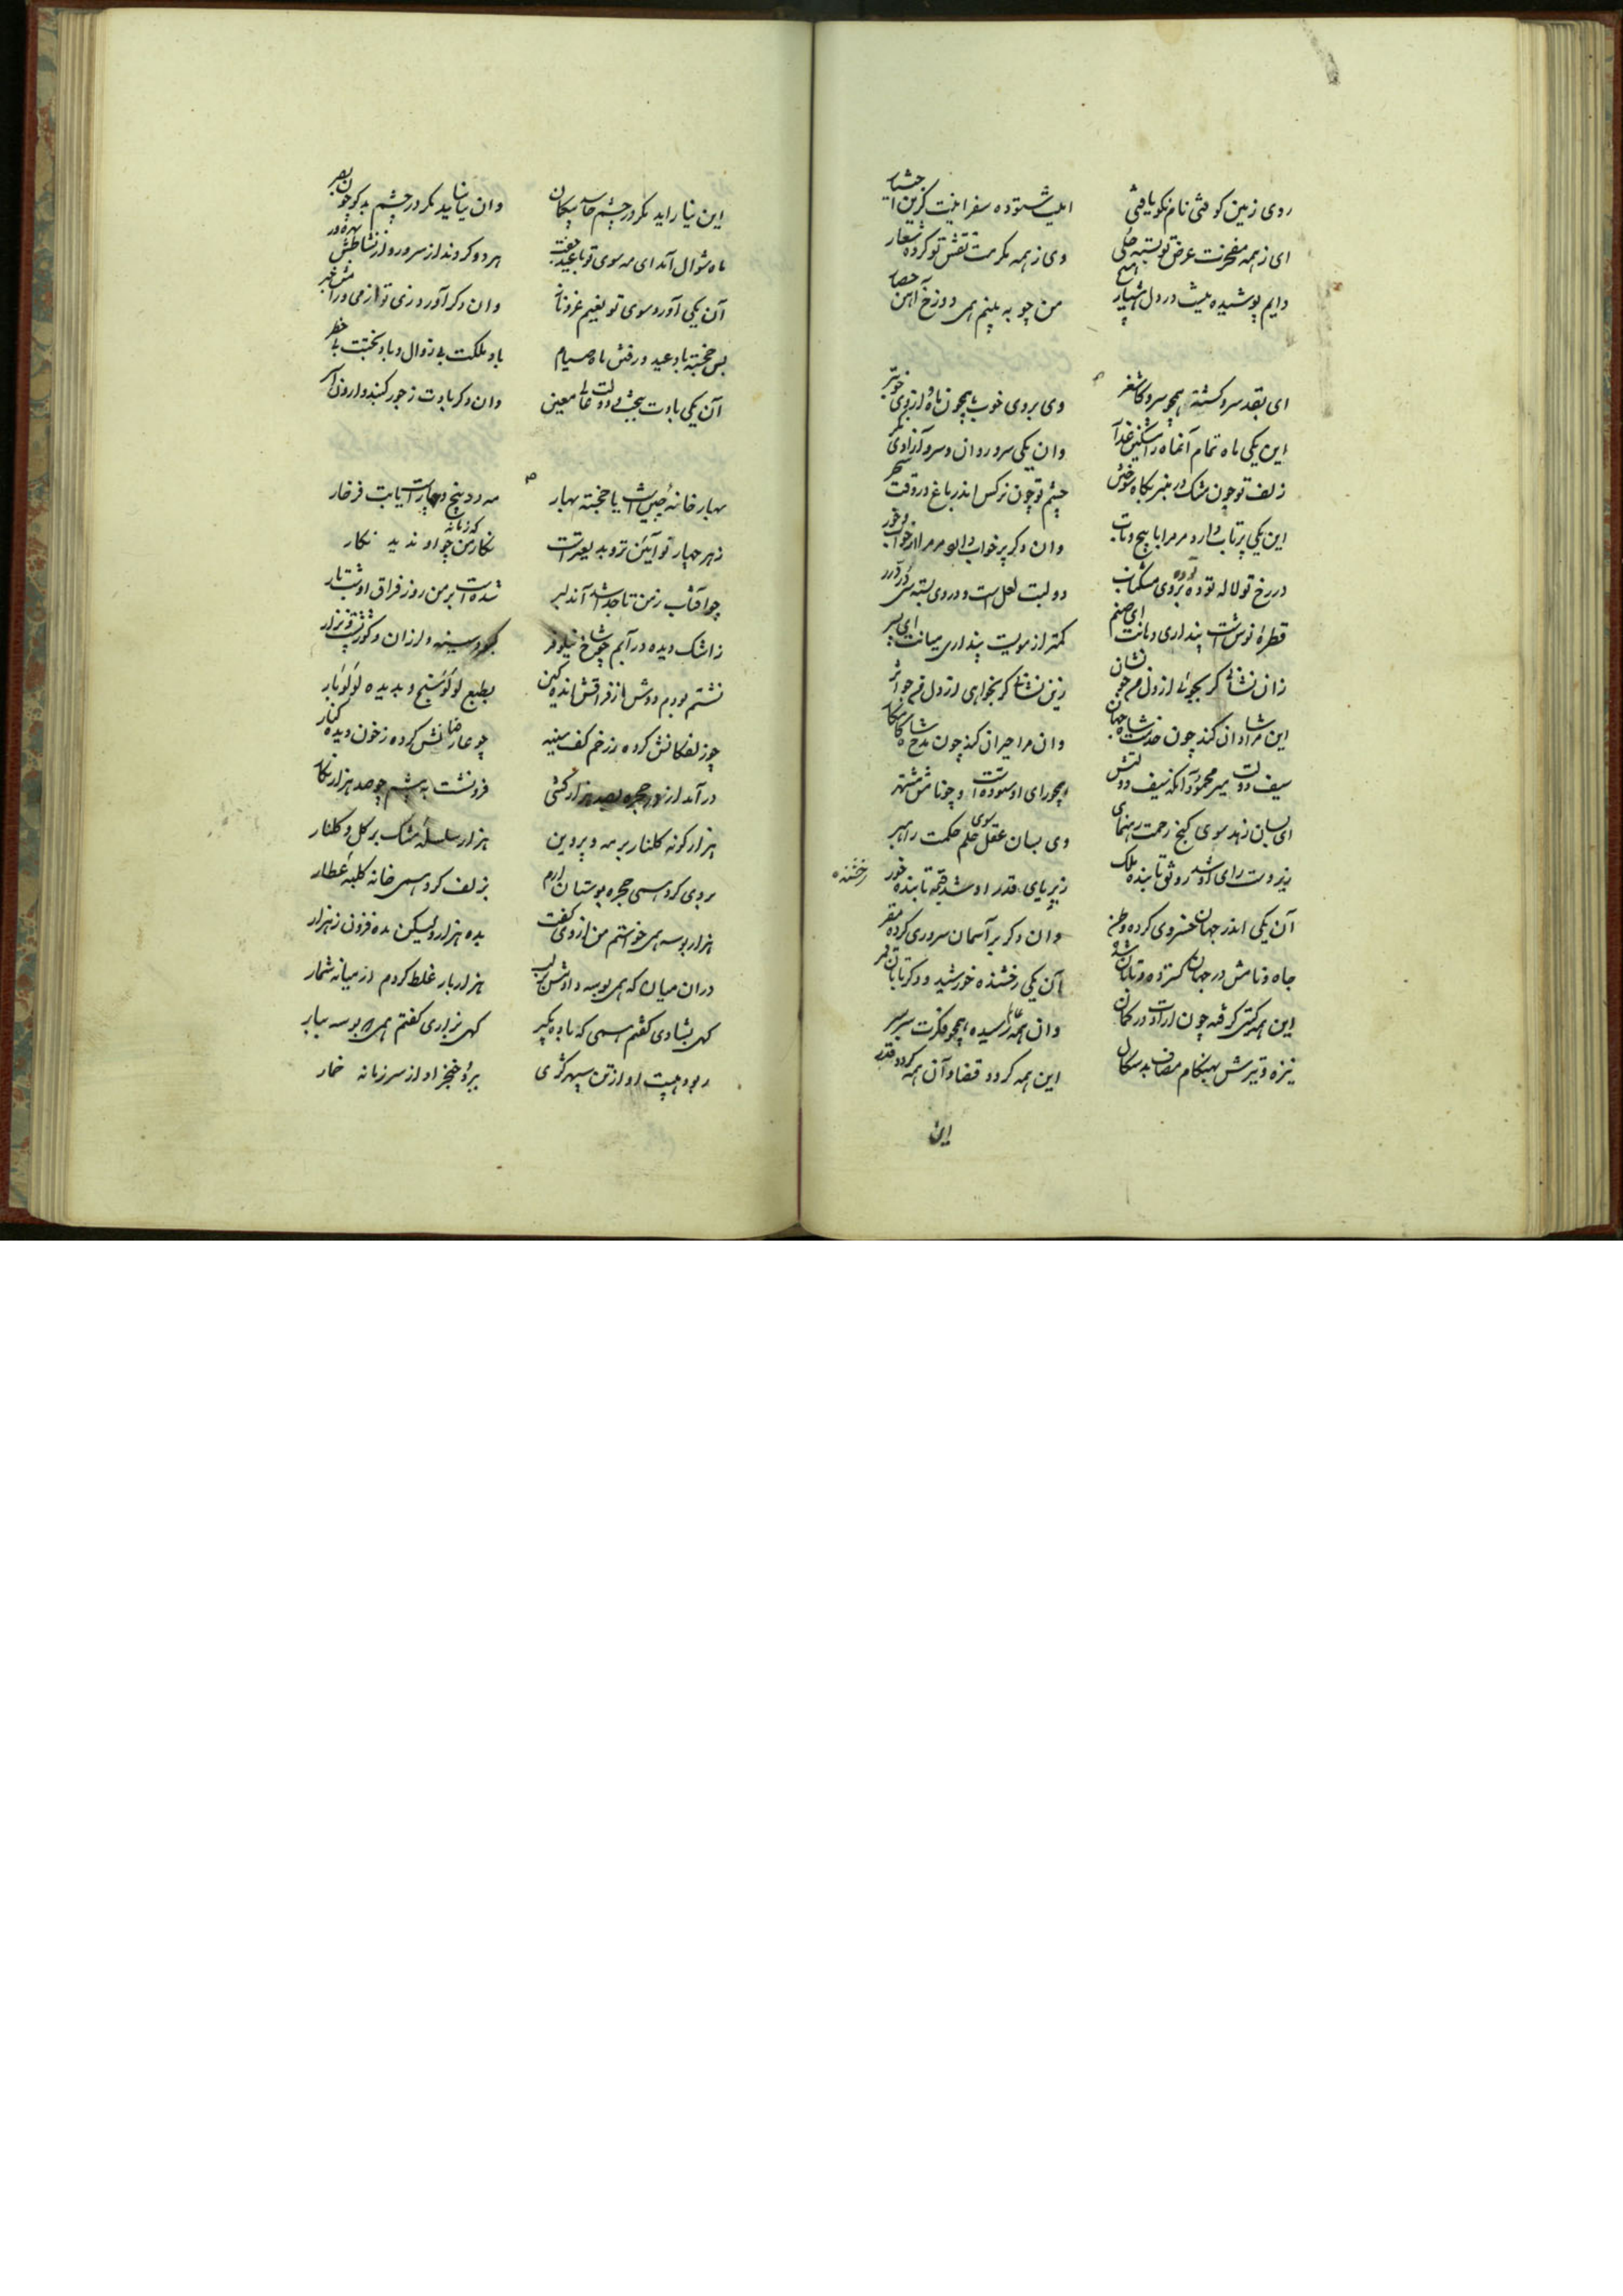 روی زمین کوفتی نام نکو یافتی
ابلیست ستوده سفر اینت گزین
ای ز همه مفخرت عرض تو بسته حلی
وی ز همه مکرمت نفس تو کرده شعار
دایم پوشیده نیست در دل
من چو به بینم همی دوزخ
ای بقد سرو کشته همچو سرو کاشغر
وی بروی خوب همچون ماه و از وی خوبتر
این یکی ماه تمام
وان یکی سرو روان و سرو آزادی
زلف تو چون مشک در عنبر
چشم تو چون نرکس اندر باغ در وقت سحر
این یکی پرتاب دارد مر مرا با پیچ و تاب
وان دکر پرخواب دارد مر مرا
در رخ تو لاله توده بر روی
دو لبت لعل است و در وی بسته
قطرهٔ نوش است پنداری دهانت ای صنم
کمتر از مویست پنداری میانت ای پسر
زان نشانی کر بجوئی از دل من جو نشان
زین نشانی کر بخواهی از دل من جو اثر
این مرا شادان کند چون خدمت شاه جهان
وان مرا حیران کند چون مدح شاه کامکار
سیف دولت میر محمود آنکه سیف دولتش
همچو رای او ستوده است و چو نامش مشتهر
ای بسان زهد سوی کنج رحمت رهنمای
وی بسان عقل سوی علم حکمت راهبر
زیر دست رای او شد رونق تابنده ملک
زیر پای قدر او شد قبه تابنده خور
رخشنده
آن یکی اندر جهان خسروی کرده وطن
وان دکر بر آسمان سروری کرده مقر
جاه و نامش در جهان کسترده و تابان شده
آن یکی رخشنده خورشید و دکر تابان قمر
این همه کیتی کرفته چون
وان همه رسیده همچو فکرت سربسر
نیزه و تیرش بهنکام مصاف بدسکال
این همه کردد قضا و آن همه کردد قدر
این
این نیاراید مکر در چشم حاسد پیکان
وان نیاید مکر در چشم بدکو چون بصر
ماه شوال آمد ای مه سوی تو با عید جفت
هر دو کردند از سرور و از نشاطش بهره ور
آن یکی آورد سوی تو نعیم
وان دکر آورد زی تو از می
بس خجسته باد عید و رفتن ماه صیام
باد ملکت بی زوال و باد بختت بی خطر
آن یکی بادت ببخت و دولت عالی معین
وان دکر بادت ز جور کنبد وارون
بهار خانهٔ چین است یا خجسته بهار
مه دو پنج و چهار است یا بت فرخار
ز هر چهار نو آیین تر و بدیع تر است
نکار من که زمانه چو او ندید نکار
چو آفتاب ز من تا جدا شد آن دلبر
شده است بر من روز فراق او شب تار
ز اشک دیده در آبم چو شاخ نیلوفر
کبود سینه و لرزان و کوژپشت و نزار
نشسته بودم دوش از فراقش انده کین
بطبع لؤلؤ سنج و بدیده لؤلؤبار
چو زلفکانش کرده ز زخم کف سینه
چو عارضانش کرده ز خون دیده کنار
درآمد از در حجره بصد هزار کشی
فرونشست به پیشم چو صد هزار نکار
هزار کونه کلنار بر مه و پروین
هزار سلسلهٔ مشک بر کل و کلنار
بروی کرد همی حجره بوستان ارم
بزلف کرد همی خانه کلبهٔ عطار
هزار بوسه همی خواستم من از وی کفت
بده هزار ولیکن مده فزون ز هزار
در آن میان که همی بوسه دادمش بر لب
هزار بار غلط کردم از میانه شمار
کهی بشادی کفتم همی که باده بکیر
کهی بزاری کفتم همی که بوسه بیار
ربود هیبت او از تن سپهر کژی
ببرد خنجر او از سر زمانه خمار